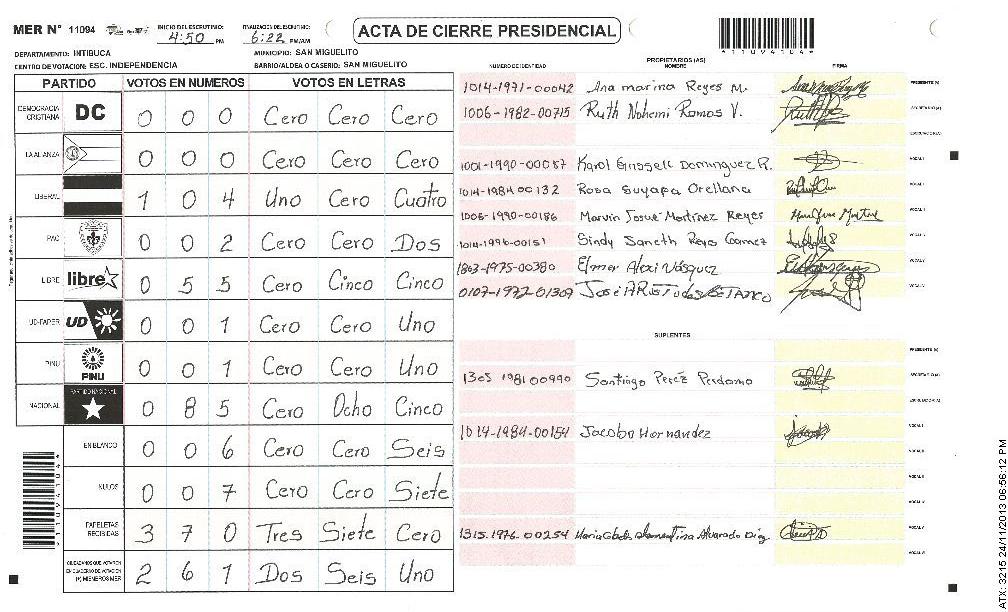 MER N° 11094 INICIO DEL ESCRUTINIO: 4:50 PM FINALIZACION DEL ESCRUTINIO: 6:22 PM/AM ACTA DE CIERRE PRESIDENCIAL *11094104*
DEPARTAMENTO: INTIBUCA MUNICIPIO: SAN MIGUELITO
CENTRO DE VOTACION: ESC. INDEPENDENCIA BARRIO/ALDEA O CASERIO: SAN MIGUELITO
PARTIDO VOTOS EN NUMEROS VOTOS EN LETRAS
DEMOCRACIA CRISTIANA DC 0 0 0 Cero Cero Cero
LA ALIANZA 0 0 0 Cero Cero Cero
LIBERAL 1 0 4 Uno Cero Cuatro
PAC 0 0 2 Cero Cero Dos
LIBRE libre 0 5 5 Cero Cinco Cinco
UD-FAPER UD 0 0 1 Cero Cero Uno
PINU PINU 0 0 1 Cero Cero Uno
NACIONAL PARTIDO NACIONAL 0 8 5 Cero Ocho Cinco
EN BLANCO 0 0 6 Cero Cero Seis
NULOS 0 0 7 Cero Cero Siete
PAPELETAS RECIBIDAS 3 7 0 Tres Siete Cero
CIUDADANOS QUE VOTARON EN CUADERNO DE VOTACION (+) MIEMBROS MER 2 6 1 Dos Seis Uno
*11094104*
PROPIETARIOS (AS)
NUMERO DE IDENTIDAD NOMBRE FIRMA
1014-1971-00042 Ana marina Reyes M. PRESIDENTE (A)
1006-1982-00715 Ruth Nohemi Ramos V. SECRETARIO (A)
ESCRUTADOR (A)
1001-1990-00087 Karol Grissell Dominguez R. VOCAL I
1014-1984-00132 Rosa Suyapa Orellana
1006-1990-00186 Marvin Josué Martínez Reyes
1014-1996-00151 Sindy Saneth Reyes Gomez
1803-1975-00380 Elmer Alexi Vásquez
0107-1972-01309 José
SUPLENTES
PRESIDENTE (A)
1305 1981 00990 Santiago Peréz Perdomo SECRETARIO (A)
ESCRUTADOR (A)
1014-1984-00154 Jacobo Hernandez VOCAL I
1315-1976-00254 Alvarado Diaz
ATX: 3215 24/11/2013 06:56:12 PM